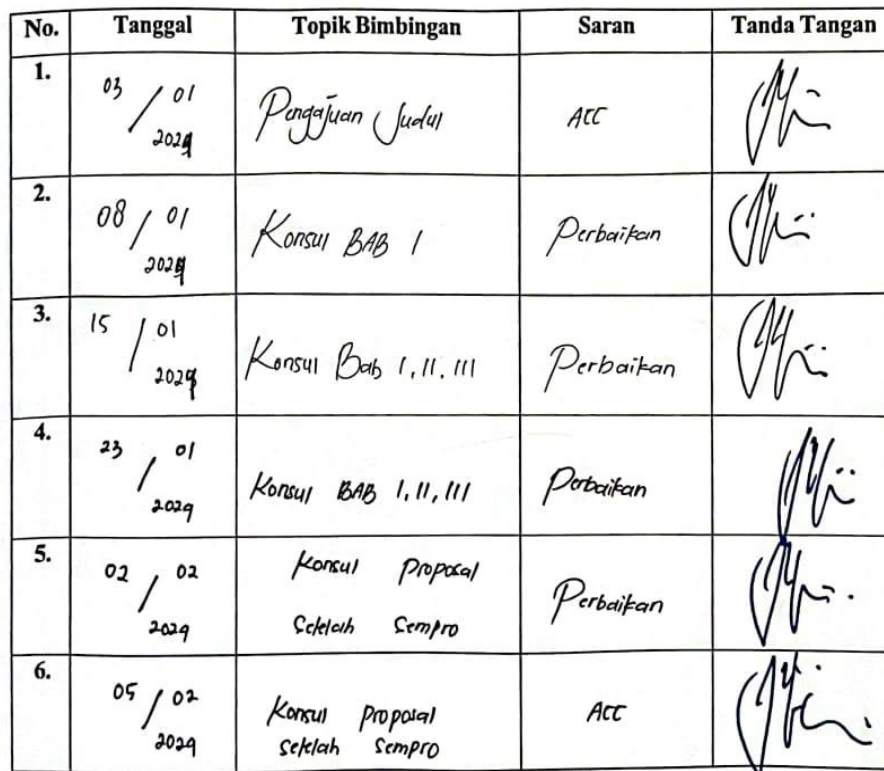 No. Tanggal Topik Bimbingan Saran Tanda Tangan
1. 03 / 01 2024 Pengajuan Judul ACC
2. 08 / 01 2024 Konsul BAB I Perbaikan
3. 15 / 01 2024 Konsul Bab I, II. III Perbaikan
4. 23 / 01 2024 Konsul BAB I, II, III Perbaikan
5. 02 / 02 2024 Konsul Proposal
Setelah Sempro Perbaikan
6. 05 / 02 2024 Konsul Proposal
setelah Sempro ACC